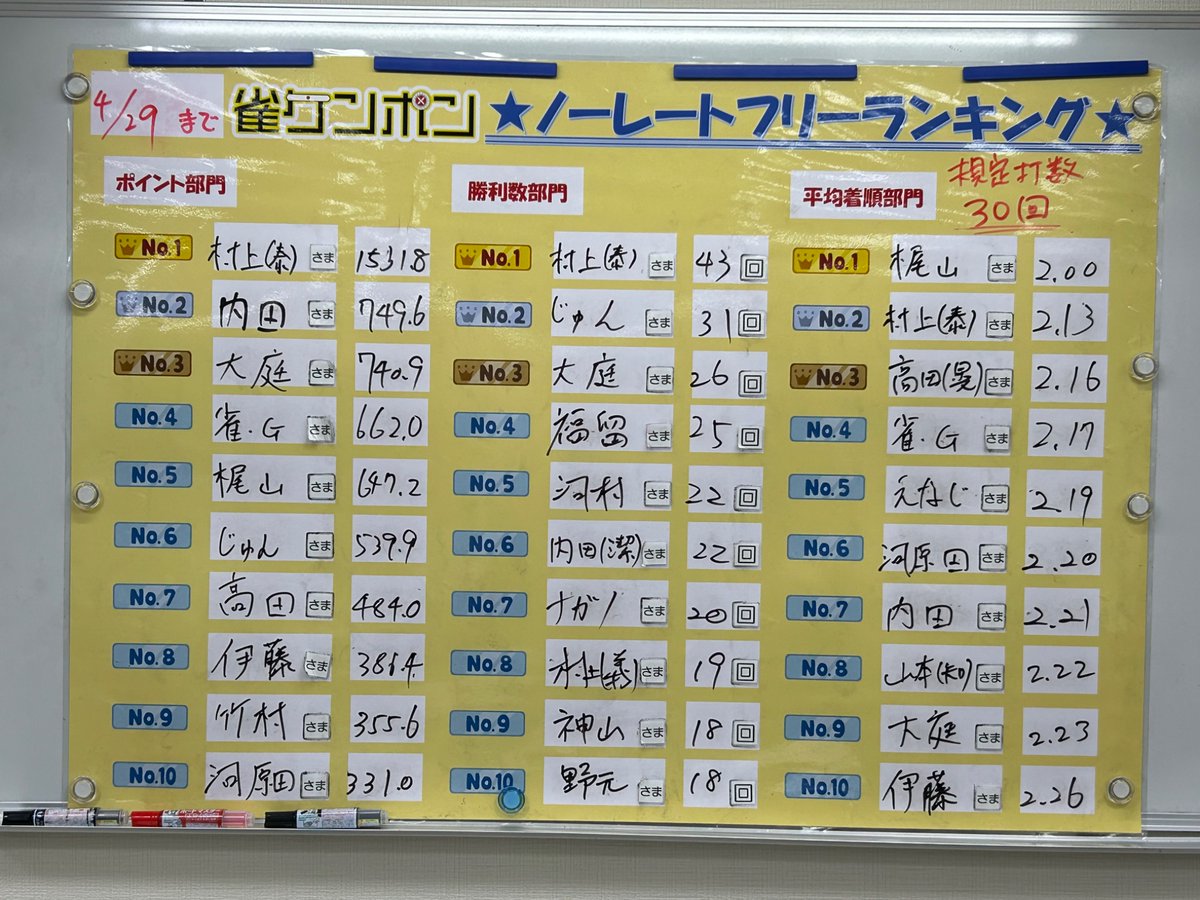 4/29 まで 雀ケンポン ★ノーレートフリーランキング★
ポイント部門
No.1 村上(泰) さま 1531.8
No.2 内田 さま 749.6
No.3 大庭 さま 740.9
No.4 雀.G さま 662.0
No.5 梶山 さま 647.2
No.6 じゅん さま 539.9
No.7 高田 さま 484.0
No.8 伊藤 さま 386.4
No.9 竹村 さま 355.6
No.10 河原田 さま 331.0
勝利数部門
No.1 村上(泰) さま 43 回
No.2 じゅん さま 31 回
No.3 大庭 さま 26 回
No.4 福留 さま 25 回
No.5 河村 さま 22 回
No.6 内田(潔) さま 22 回
No.7 ナガノ さま 20 回
No.8 村上(義) さま 19 回
No.9 神山 さま 18 回
No.10 野元 さま 18 回
平均着順部門
規定打数
30回
No.1 梶山 さま 2.00
No.2 村上(泰) さま 2.13
No.3 高田(晃) さま 2.16
No.4 雀.G さま 2.17
No.5 えなじ さま 2.19
No.6 河原田 さま 2.20
No.7 内田 さま 2.21
No.8 山本(知) さま 2.22
No.9 大庭 さま 2.23
No.10 伊藤 さま 2.26